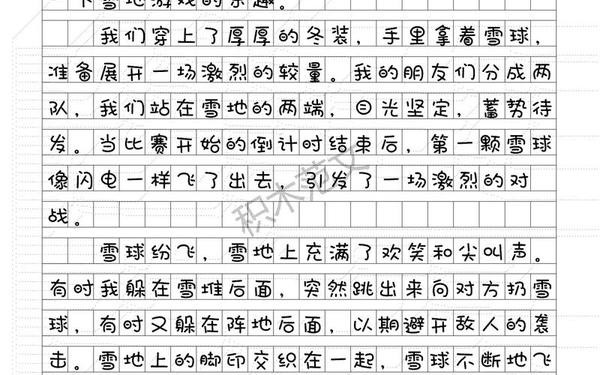 下雪地游戏的乐趣。
我们穿上了厚厚的冬装，手里拿着雪球，
准备展开一场激烈的较量。我的朋友们分成两
队，我们站在雪地的两端，目光坚定，蓄势待
发。当比赛开始的倒计时结束后，第一颗雪球
像闪电一样飞了出去，引发了一场激烈的对
战。
雪球纷飞，雪地上充满了欢笑和尖叫声。
有时我躲在雪堆后面，突然跳出来向对方扔雪
球，有时又躲在阵地后面，以期避开敌人的袭
击。雪地上的脚印交织在一起，雪球不断地飞
积木范文